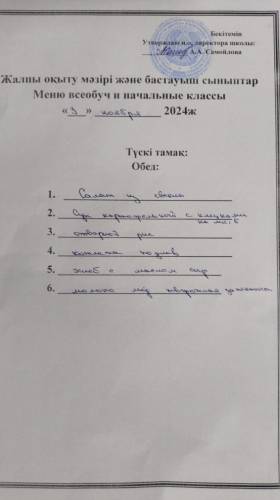 Бекітемін
Утверждаю и.о. директора школы:
А.А. Самойлова
Жалпы оқыту мәзірі және бастауыш сыныптар
Меню всеобуч и начальные классы
« 9 » ноября 2024ж
Түскі тамақ:
Обед:
1. Салат из свеклы
2. Суп картофельный с клецками
3. отварной рис
4. котлета подлив
5. хлеб с маслом сыр
6. молоко мёд творожная запеканка